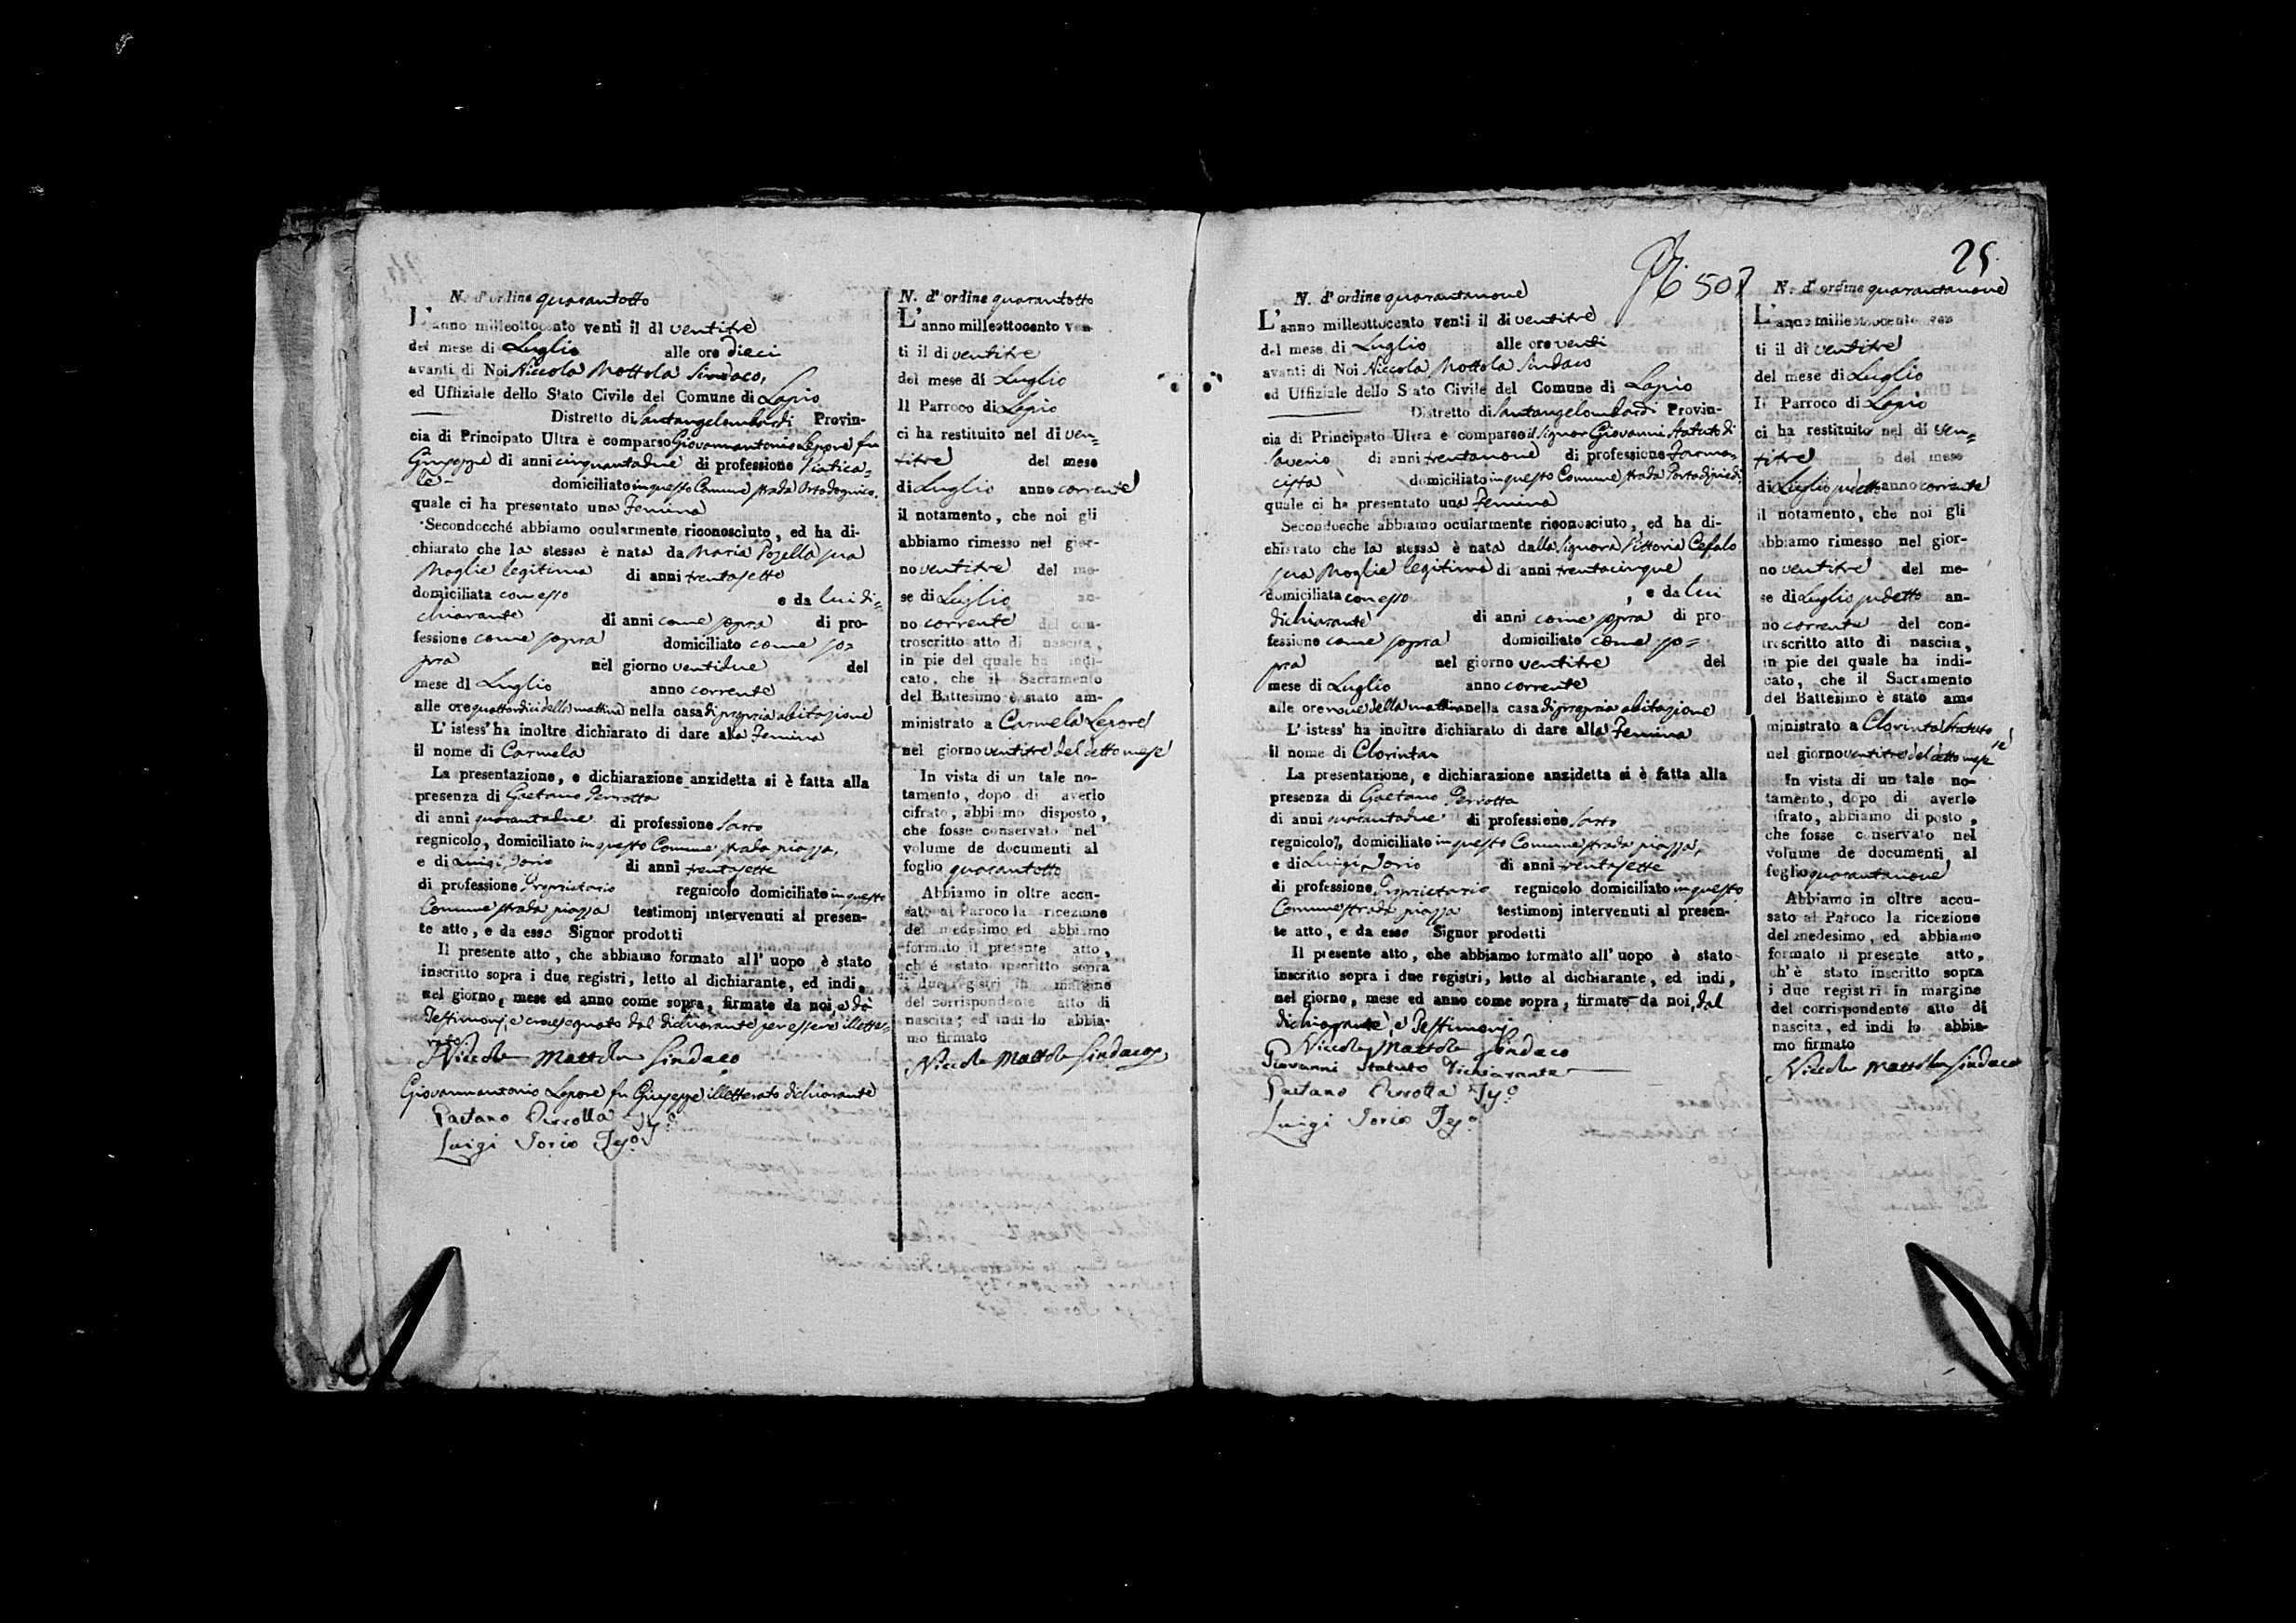 N. d'ordine quarantotto
L'anno milleottocento venti il dì ventitre
del mese di Luglio alle ore dieci
avanti di Noi Niccola Mottola Sindaco,
ed Uffiziale dello Stato Civile del Comune di Lapio
Distretto di Santangelombardi Provin-
cia di Principato Ultra è comparso Giovannantonio Lepore fu
Giuseppe di anni cinquantadue di professione
domiciliato in questo Comune strada
quale ci ha presentato una Femina
Secondocché abbiamo ocularmente riconosciuto, ed ha di-
chiarato che la stessa è nata da Maria Pozella sua
Moglie legitima di anni trentasette
domiciliata con esso e da lui di=
chiarante di anni come sopra di pro-
fessione come sopra domiciliato come so=
pra nel giorno ventidue del
mese di Luglio anno corrente
alle ore quattordici della mattina nella casa di propria abitazione
L'istess' ha inoltre dichiarato di dare alla Femina
il nome di Carmela
La presentazione, e dichiarazione anzidetta si è fatta alla
presenza di Gaetano Perrotta
di anni quarantadue di professione Sarto
regnicolo, domiciliato in questo Comune strada piazza,
e di Luigi Iorio di anni trentasette
di professione Proprietario regnicolo domiciliato in questo
Comune strada piazza testimonj intervenuti al presen-
te atto, e da esso Signor prodotti
Il presente atto, che abbiamo formato all' uopo è stato
inscritto sopra i due registri, letto al dichiarante, ed indi,
nel giorno, mese ed anno come sopra, firmato da noi, e dà
Testimonj, e crocesegnato dal dichiarante per essere illette-
rato
Niccola Mottola Sindaco
Giovannantonio Lepore fu Giuseppe illetterato dichiarante
Gaetano Perrotta Tes.o
Luigi Iorio Tes.o
N. d'ordine quarantotto
L'anno milleottocento ven-
ti il dì ventitre
del mese di Luglio
Il Parroco di Lapio
ci ha restituito nel dì ven=
titre del mese
di Luglio anno corrente
il notamento, che noi gli
abbiamo rimesso nel gior-
no ventitre del me-
se di Luglio an-
no corrente del con-
troscritto atto di nascita,
in piè del quale ha indi-
cato, che il Sacramento
del Battesimo è stato am-
ministrato a Carmela Lepore
nel giorno ventitre del detto mese
In vista di un tale no-
tamento, dopo di averlo
cifrato, abbiamo disposto,
che fosse conservato nel
volume de documenti al
foglio quarantotto
Abbiamo in oltre accu-
sato al Paroco la ricezione
del medesimo ed abbiamo
formato il presente atto,
ch'è stato inscritto sopra
i due registri in margine
del corrispondente atto di
nascita; ed indi lo abbia-
mo firmato
Niccola Mottola Sindaco
25
507
N. d'ordine quarantanove
L'anno milleottocento venti il di ventitre
del mese di Luglio alle ore venti
avanti di Noi Niccola Mottola Sindaco
ed Uffiziale dello Stato Civile del Comune di Lapio
Distretto di Santangelombardi Provin-
cia di Principato Ultra è comparso il Signor Giovanni Statuto di
Saverio di anni trentanove di professione Farma=
cista domiciliato in questo Comune strada
quale ci ha presentato una Femina
Secondocche abbiamo ocularmente riconosciuto, ed ha di-
chiarato che la stessa è nata dalla Signora Vittoria Cefalo
sua Moglie legitima di anni trentacinque
domiciliata con esso, e da lui
dichiarante di anni come sopra di pro-
fessione come sopra domiciliato come so=
pra nel giorno ventitre del
mese di Luglio anno corrente
alle ore nove della mattina nella casa di propria abitazione
L'istess' ha inoltre dichiarato di dare alla Femina
il nome di Clorinta
La presentazione, e dichiarazione anzidetta si è fatta alla
presenza di Gaetano Perrotta
di anni quarantadue di professione Sarto
regnicolo, domiciliato in questo Comune strada piazza,
e di Luigi Iorio di anni trentasette
di professione Proprietario regnicolo domiciliato in questo
Comune strada piazza testimonj intervenuti al presen-
te atto, e da esso Signor prodotti
Il presente atto, che abbiamo formato all' uopo è stato
inscritto sopra i due registri, letto al dichiarante, ed indi,
nel giorno, mese ed anno come sopra, firmato da noi, dal
dichiarante, e Testimonj
Niccola Mottola Sindaco
Giovanni Statuto Dichiarante
Gaetano Perrotta Tes.o
Luigi Iorio Tes.o
N. d'ordine quarantanove
L'anno milleottocento ven
ti il dì ventitre
del mese di Luglio
Il Parroco di Lapio
ci ha restituito nel dì ven=
titre del mese
di Luglio sudetto anno corrente
il notamento, che noi gli
abbiamo rimesso nel gior-
no ventitre del me-
se di Luglio sudetto an-
no corrente del con-
troscritto atto di nascita,
in piè del quale ha indi-
cato, che il Sacramento
del Battesimo è stato am-
ministrato a Clorinta Statuto
nel giorno ventitre del detto mese
In vista di un tale no-
tamento, dopo di averlo
cifrato, abbiamo disposto,
che fosse conservato nel
volume de documenti al
foglio quarantanove
Abbiamo in oltre accu-
sato al Paroco la ricezione
del medesimo, ed abbiamo
formato il presente atto,
ch'è stato inscritto sopra
i due registri in margine
del corrispondente atto di
nascita, ed indi lo abbia-
mo firmato
Niccola Mottola Sindaco